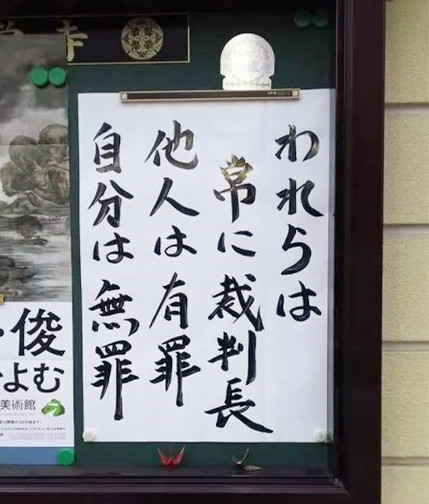 われらは
常に裁判長
他人は有罪
自分は無罪
俊
よむ
美術館